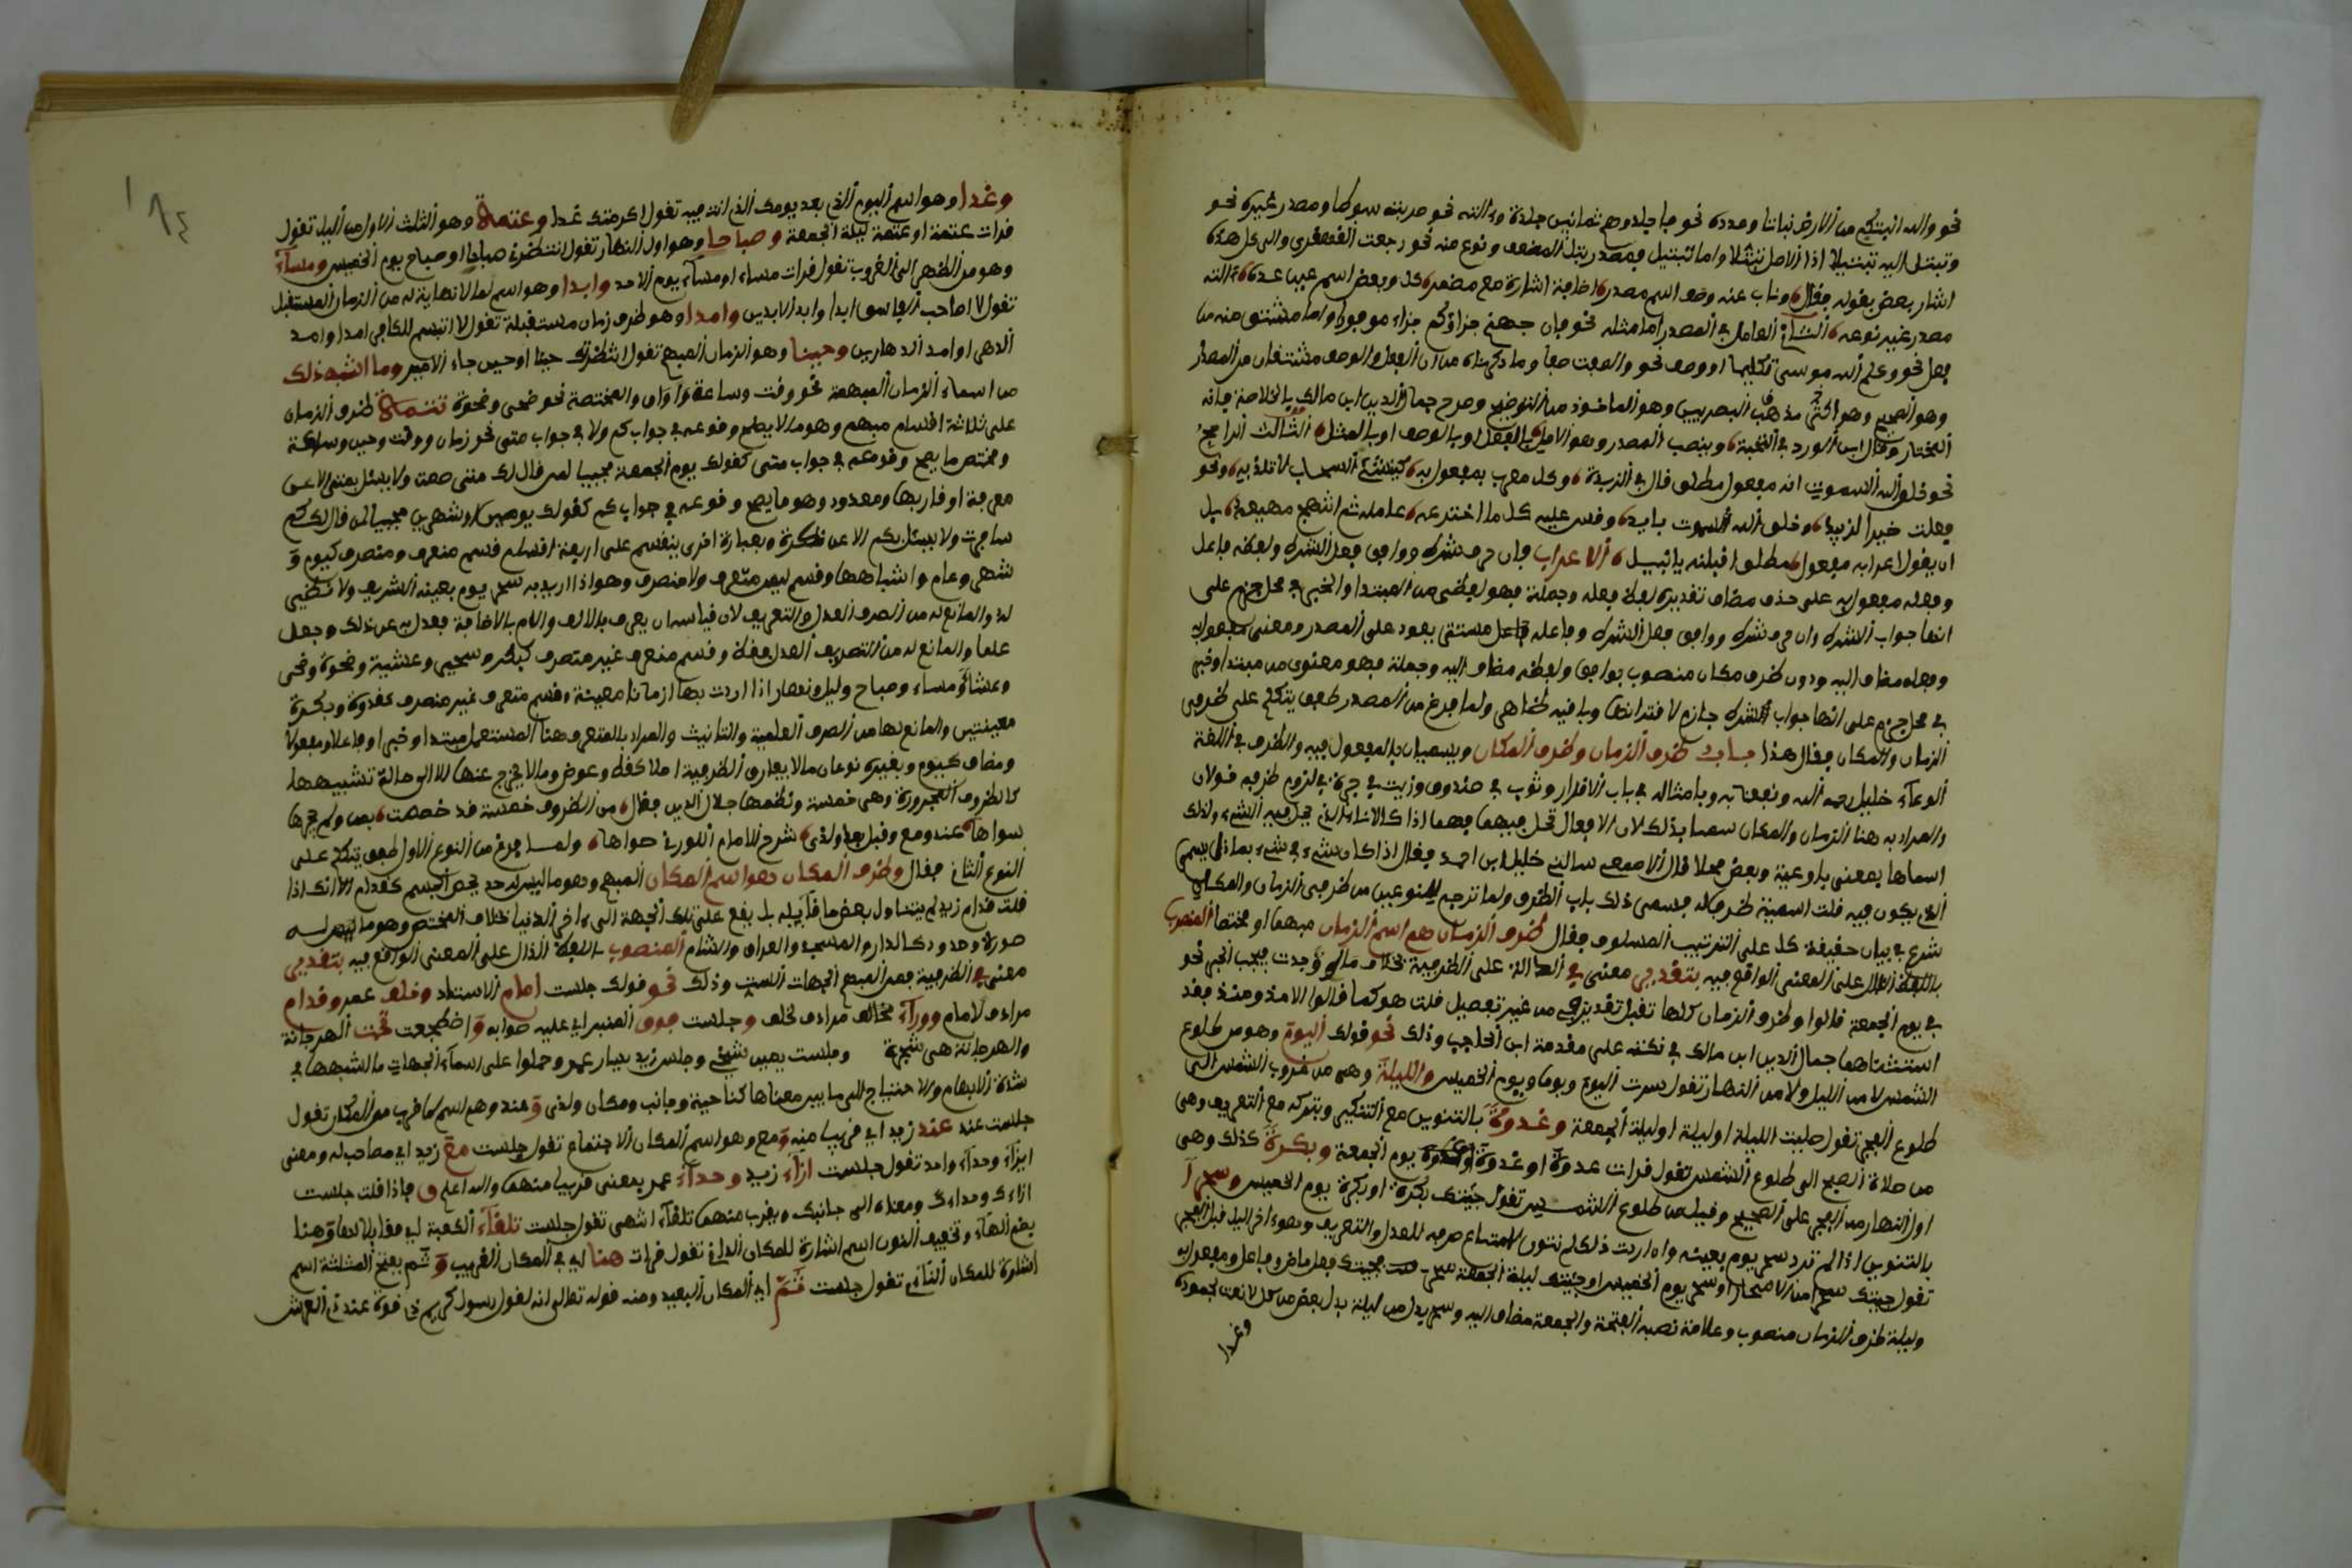 نحو والله انبتكم من الارض نباتا وعدده نحو فاجلدوهم ثمانين جلدة وءالته نحو ضربته سوطا ومصدر غيره نحو
وتبتل اليه تبتيلا اذ الاصل تبتلا واما تبتيل فمصدر بتل المضعف ونوع منه نحو رجعت القهقرى والى كل هذه
اشار بعض بقوله فقال وناب عنه وصف اسم مصدر اضافة اشارة مع مضمر كل وبعض اسم عين عدة ءالته
مصدر غير نوعه الثاني العامل في المصدر اما مثله نحو فان جهنم جزاؤكم جزاء موفورا واما مشتق منه من
فعل نحو وكلم الله موسى تكليما او وصف نحو والصافات صفا وما ذكرناه من ان الفعل والوصف مشتقان من المصدر
وهو الصحيح وهو اكثر مذهب البصريين وهو الماخوذ من التوضيح وصرح جمال الدين ابن مالك بالخلاصة فانه
المختار وقال ابن الورد في التحفة وينصب المصدر وهو الاصل بالفعل او بالوصف او بالمثل الثالث الراجح
نحو خلق الله السموات انه مفعول مطلق قال في الزبدة وكل معرب بمفعول به كينشئ السحاب لا تلذ به ونحو
فعلت خيرا لزيد وخلق الله السموات بابه وقس عليه كل ما اخترعه عامله ثم انتهج مهيعه بل
ان يقول اعرابه مفعول مطلق اقبلنه يا نبيل الاعراب فان حرف شرط ووافق فعل الشرط ولفظه فاعل
وفعله مفعول به على حذف مضاف تقديره لفظ فعله وجملة فهو لفظي من المبتدا والخبر في محل جزم على
انها جواب الشرط وان حرف شرط ووافق فعل الشرط وفاعله مستتر يعود على المصدر ومعنى مفعول به
وفعله مضاف اليه ودون ظرف مكان منصوب بوافق ولفظه مضاف اليه وجملة فهو معنوي من مبتدا وخبر
في محل جزم على انها جواب الشرط جازم لاقترانها وباقيه ظاهر ولما فرغ من المصدر طفق يتكلم على ظرفي
الزمان والمكان فقال هذا باب ظرف الزمان وظرف المكان ويسميان بالمفعول فيه والظرف في اللغة
الوعاء خليل رحمه الله ونفعنا به وبامثاله في باب الاقرار وثوب في صندوق وزيت في جرة في لزوم ظرفه قولان
والمراد به هنا الزمان والمكان سميا بذلك لان الافعال تحل فيهما فهما اذا كالاناء الذي يحل فيه الشيء ولذلك
اسماها بعضى باوعية وبعض محلا قال الاصمعي سالني خليل ابن احمد فقال اذا كان شيء في شيء بماذا يسمى
الذي يكون فيه قلت اسميه ظرفا له فسمى ذلك باب الظرف ولما ترجم للنوعين من ظرفي الزمان والمكان
شرع في بيان حقيقة كل على الترتيب المسلوف فقال ظرف الزمان هو اسم الزمان مبهما او مختصا المنصوب
باللفظ الدال على المعنى الواقع فيه بتقدير معنى في الدالة على الظرفية بخلاف ما لو وجدت فيجب الجر نحو
في يوم الجمعة قالوا وظروف الزمان كلها تقبل تقدير في من غير تفصيل قلت هو كما قالوا الا مذ ومنذ فقد
استثناهما جمال الدين ابن مالك في نكته على مقدمة ابن الحاجب وذلك نحو قولك اليوم وهو من طلوع
الشمس لا من الليل ولا من النهار تقول سرت اليوم ويوما ويوم الخميس والليلة وهي من غروب الشمس الى
طلوع الفجر تقول صليت الليلة او ليلة او ليلة الجمعة وغدوة بالتنوين مع التنكير وبتركه مع التعريف وهي
من صلاة الصبح الى طلوع الشمس تقول قرات غدوة او غدوة يوم الجمعة وبكرة كذلك وهي
اول النهار من الفجر على الصحيح وقيل من طلوع الشمس تقول جئتك بكرة او بكرة يوم الخميس وسحرا
بالتنوين اذا لم ترد سحر يوم بعينه وان اردت ذلك لم تنون لامتناع صرفه للعدل والتعريف وهو ءاخر الليل قبل الفجر
تقول جئتك سحرا من الاسحار او سحر يوم الخميس او جئتك ليلة الجمعة سحر فجئتك فعل ماض وفاعل ومفعول به
وليلة ظرف الزمان منصوب وعلامة نصبه الفتحة والجمعة مضاف اليه وسحر بدل من ليلة بدل بعض من كل لا نعت لجموده
وغدا
١٨٤
وغدا وهو اسم اليوم الذي بعد يومك الذي انت فيه تقول اكرمتك غدا وعتمة وهو الثلث الاول من الليل تقول
قرات عتمة او عتمة ليلة الجمعة وصباحا وهو اول النهار تقول انتظرته صباحا او صباح يوم الخميس ومساء
وهو من الظهر الى الغروب تقول قرات مساء او مساء يوم الاحد وابدا وهو اسم لما لا نهاية له من الزمان المستقبل
تقول لا اصاحب الفاسق ابدا وابد الابدين وامدا وهو ظرف زمان مستقبلة تقول لا اتبسم للكافر امدا وامد
الدهر او امد الداهرين وحينا وهو الزمان المبهم تقول انتظرتك حينا او حين جاء الامير وما اشبه ذلك
من اسماء الزمان المبهمة نحو وقت وساعة واوان والمختصة نحو ضحى وضحوة تتمة ظرف الزمان
على ثلاثة اقسام مبهم وهو ما لا يصلح وقوعه في جواب كم ولا في جواب متى نحو زمان ووقت وحين وساعة
ومختص ما يصح وقوعه في جواب متى كقولك يوم الجمعة مجيبا لمن قال لك متى صمت ولا يسئل بمتى الا عن
معرفة او قاربها ومعدود وهو ما يصح وقوعه في جواب كم كقولك يومين او شهرين مجيبا لمن قال لك كم
سافرت ولا يسئل بكم الا عن نكرة وبعبارة اخرى ينقسم على اربعة اقسام قسم متصرف ومنصرف كيوم و
شهر وعام واشباهها وقسم ليس متصرف ولا منصرف وهو اذا اريد به سحر يوم بعينه الشريف ولا نظير
له والمانع له من الصرف العدل والتعريف لان قياسه ان يعرف بالالف واللام بالاضافة فعدل به عن ذلك وجعل
علما والمانع له من التصريف العدل فقط وقسم منصرف غير متصرف كبكر وسحير وعشية وضحوة وضحى
وعشاء ومساء وصباح وليل ونهار اذا اردت بها ازمانا معينة وقسم متصرف غير منصرف كغدوة وبكرة
معينتين والمانع لها من الصرف العلمية والتانيث والمراد بالمتصرف هنا المستعمل مبتدا وخبرا وفاعلا ومفعولا
ومضاف كيوم وبغيره نوعان ما لا يفارق الظرفية اصلا كقط وعوض وما لا يخرج عنها الا الى حالة تشبهها
كالظروف المجرورة وهي خمسة ونظمها جلال الدين فقال من الظروف خمسة قد خصصت بمن ولم يجرها
سواها عند ومع وقبل بعد ولدى شرح الامام اللورقي حواها ولما فرغ من النوع الاول طفق يتكلم على
النوع الثاني فقال وظرف المكان هو اسم المكان المبهم وهو ما ليس له حد يحصر الجسم كقدام لانك اذا
قلت قدام زيد لم يتناول بعض ما قابله بل يقع على تلك الجهة الى ءاخر الدنيا بخلاف المختص وهو ما له
صورة وحدود كالدار والمسجد والعراق والشام المنصوب باللفظ الدال على المعنى الواقع فيه بتقدير
معنى في الظرفية فمن المبهم الجهات الست وذلك نحو قولك جلست امام الاستاد وخلف عمر وقدام
مرادف لامام ووراء مخالف مرادف لخلف وجلست فوق المنبر اي عليه صوابه واضطجعت تحت المرجانة
والمرجانة هي شجرة وجلست يمين شيخي وجلس زيد يسار عمر وحملوا على اسماء الجهات ما اشبهها في
شدة الابهام والاحتياج الى ما يبين معناها كناحية وجانب ومكان ولدى وعند وهو اسم لما قرب من المكان تقول
جلست عند عند زيد اي قريبا منه ومع وهو اسم المكان الاجتماع تقول جلست مع زيد اي مصاحب له ومعنى
ازاء وحداء واحد تقول جلست ازاء زيد وحداء عمر بمعنى قريبا منهما والله اعلم فاذا قلت جلست
ازاءك وحداءك ومعناه الى جانبك وبقرب منهما تلقاء انتهى تقول جلست تلقاء الكعبة اي مقابلا لها وهنا
بضم الهاء وتخفيف النون اسم اشارة للمكان الداني تقول قرات هنا اي في المكان القريب وثم بفتح المثلثة اسم
اشارة للمكان النائي تقول جلست ثم اي المكان البعيد ومنه قوله تعالى انه لقول رسول كريم ذي قوة عند ذي العرش